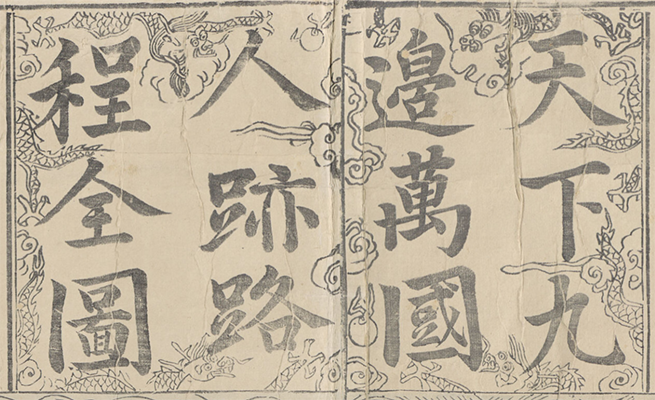 天下九
邊萬國
人跡路
程全圖